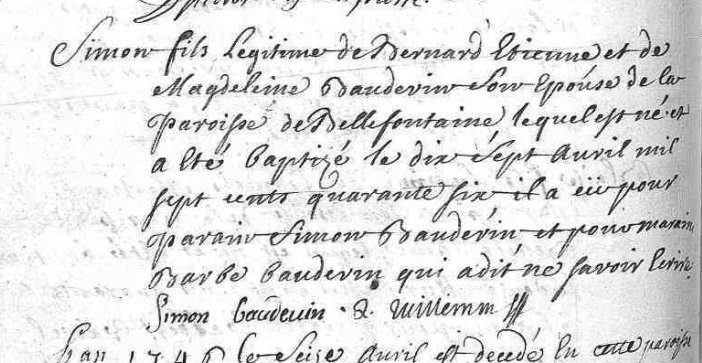 Simon fils Legitime de Bernard Etienne et de
Magdeleine Bauderin son Epouse de la
Paroisse de Bellefontaine lequel est né et
a Eté baptizé le dix sept avril mil
sept cents quarante six il a eü pour
parain Simon Bauderin et pour marain
Barbe bauderin qui a dit ne savoir Ecrire
Simon baudevin . & Willemm
L'an 1746 le Seize avril est decedé En cette paroisse